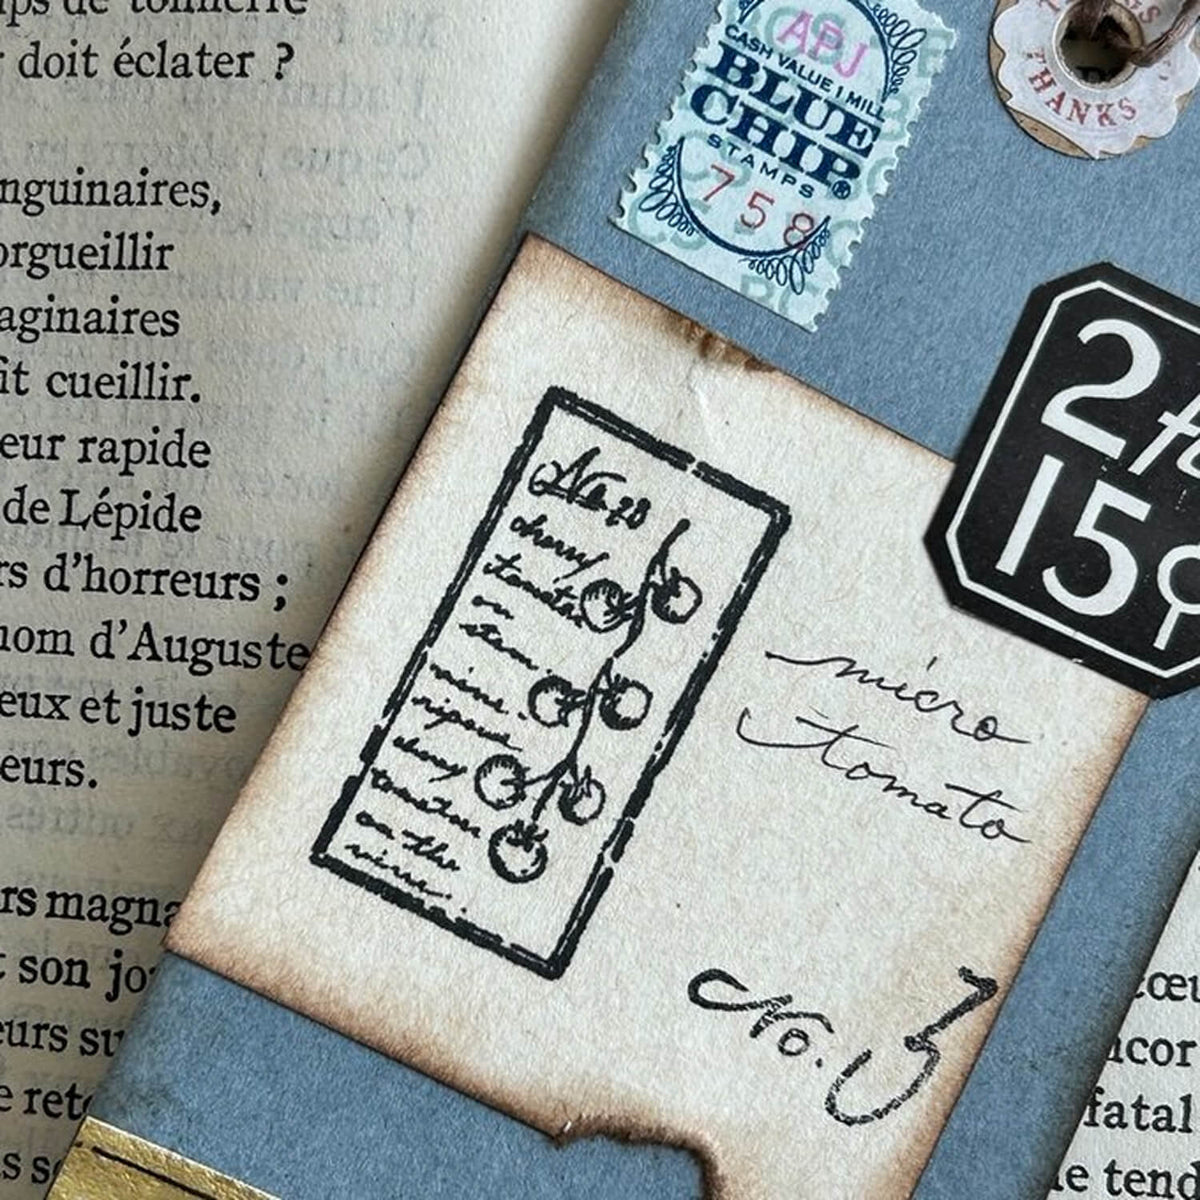 doit éclater ?
nguinaires,
orgueillir
aginaires
fit cueillir.
eur rapide
de Lépide
rs d'horreurs ;
nom d'Auguste
eux et juste
eurs.
rs magna
t son jo
eurs su
e ret
APJ
CASH VALUE 1 MILL
BLUE
CHIP®
STAMPS
758
THANKS
15¢
No. 28
cherry
tomato
on
stem.
vine.
cherry
tomatoes
on the
vine.
micro
tomato
No. 3
cor
fatal
le tend